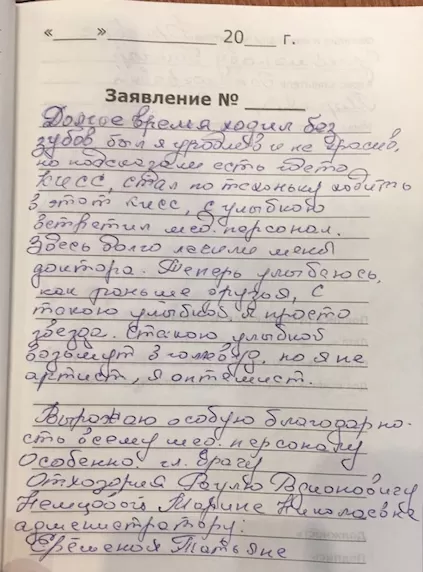 «____» ____________ 20___ г.
Заявление № ______
Долгое время ходил без
зубов был я уродлив и не красив,
но подсказали есть где то
кисс, стал по тихоньку ходить
в этот кисс, с улыбкою
встретил мед. персонал.
Здесь долго лечили меня
доктора. Теперь улыбаюсь,
как раньше друзья, с
такою улыбкой, я просто
звезда. С такою улыбкой
возьмут в голливуд, но я не
артист, я оптимист.
Выражаю особую благодарно-
сть всему мед. персоналу
Особенно гл. врачу
Раулю
Немцовой Марине Николаевне
администратору:
Ерёменой Татьяне